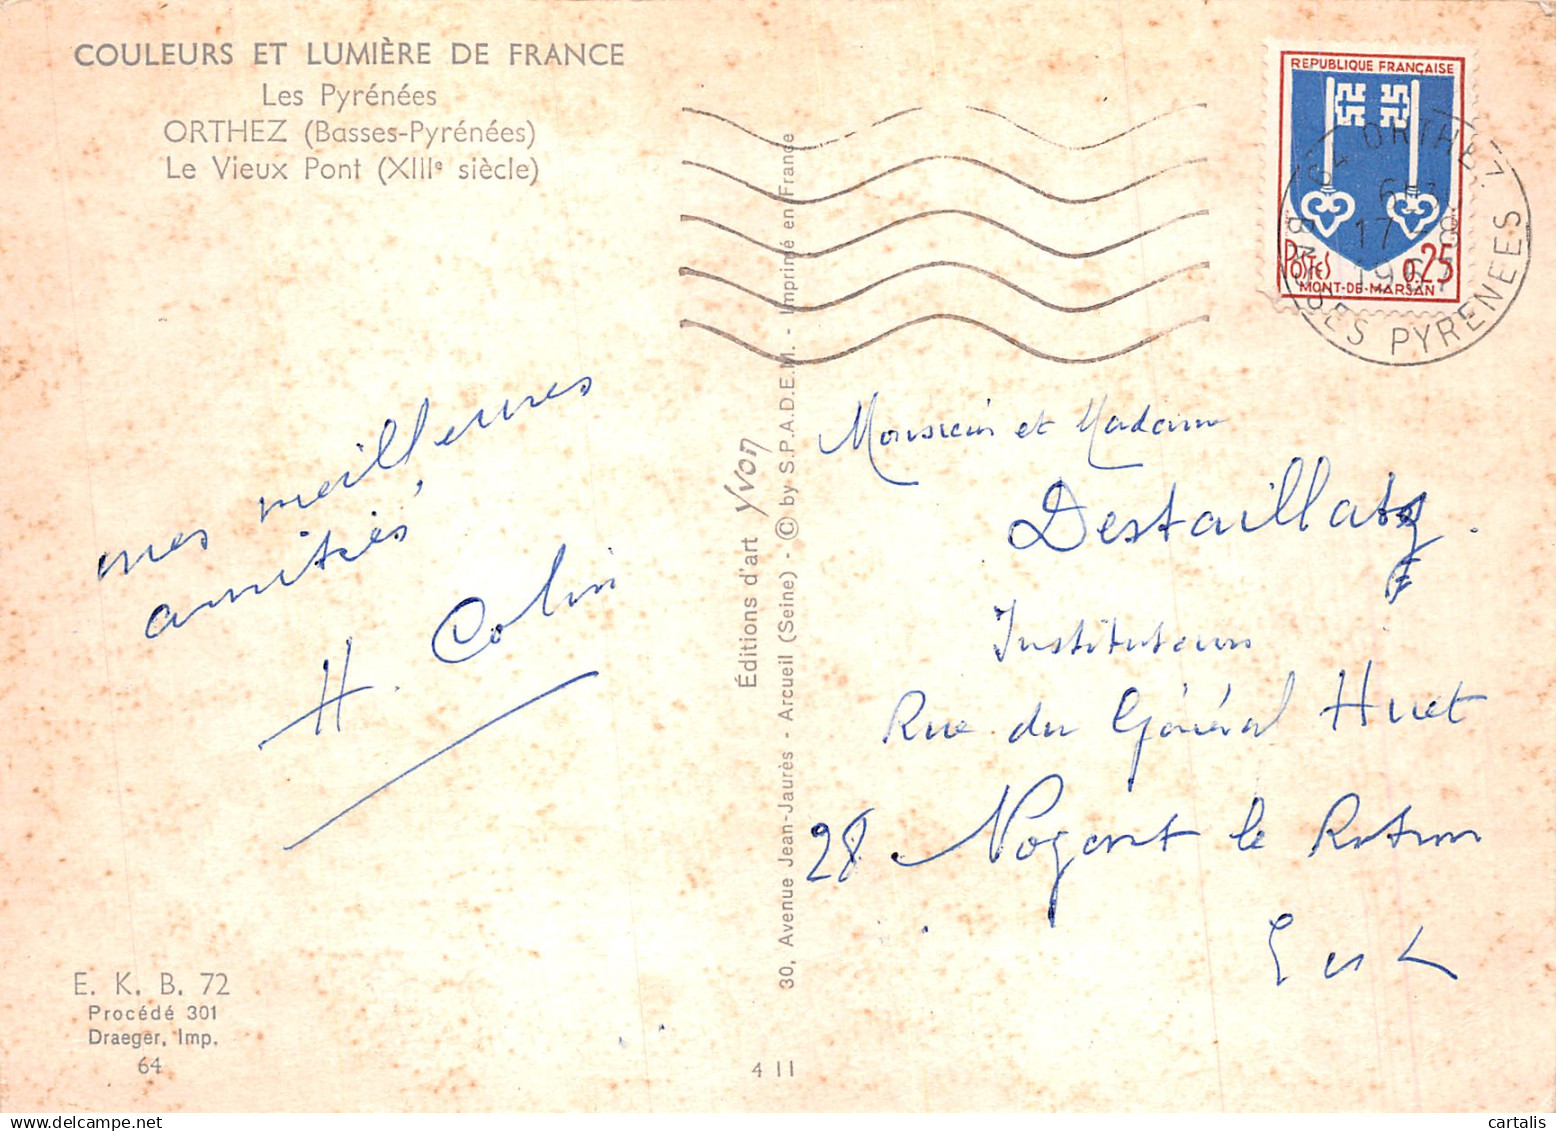 COULEURS ET LUMIÈRE DE FRANCE
Les Pyrénées
ORTHEZ (Basses-Pyrénées)
Le Vieux Pont (XIIIe siècle)
REPUBLIQUE FRANÇAISE
POSTES 0,25
MONT-DE-MARSAN
64 ORTHEZ
17 - 8
1967
BASSES PYRENEES
mes meilleures
amitiés,
H. Colin
Éditions d'art Yvon
30, Avenue Jean-Jaurès - Arcueil (Seine) - © by S.P.A.D.E.M. - Imprimé en France
Monsieur et Madame
Destaillats.
Instituteurs
Rue du Général Huet
28 Nogent le Rotrou
E et L
E. K. B. 72
Procédé 301
Draeger, Imp.
64
4 11
cartalis